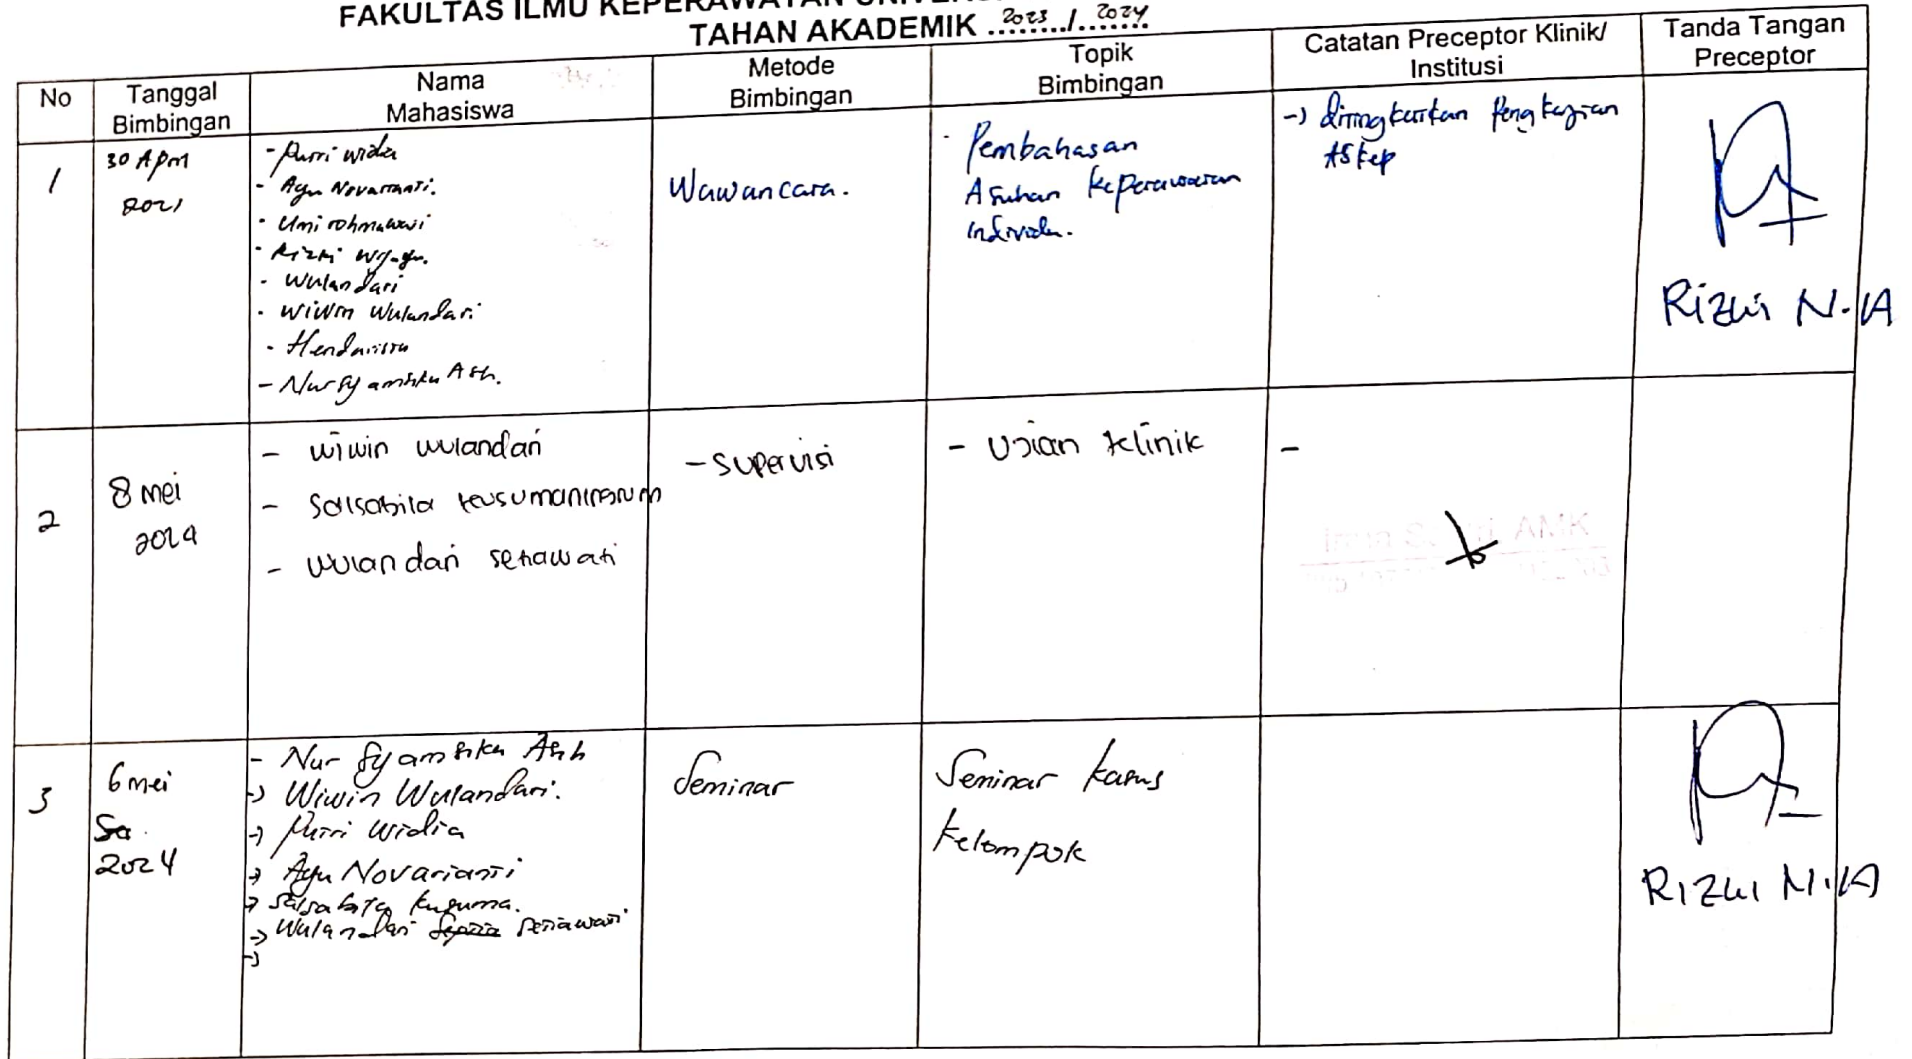 FAKULTAS ILMU KEPERAWATAN
TAHAN AKADEMIK 2023 / 2024
No
Tanggal
Bimbingan
Nama
Mahasiswa
Metode
Bimbingan
Topik
Bimbingan
Catatan Preceptor Klinik/
Institusi
Tanda Tangan
Preceptor
1
30 April
2021
- Putri widia
- Ayu Novarianti.
- Umi rohmawati
- Rizki
- Wulandari
- Wiwin Wulandari
- Hendarisra
- Nur Syamsika Ash.
Wawancara.
- Pembahasan
Asuhan keperawatan
individu.
-> ditingkatkan Pengkajian
Askep
Rizki N.A
2
8 mei
2024
- wiwin wulandari
- Salsabila kusumaningrum
- wulandari setiawati
- Supervisi
- Ujian klinik
-
AMK
3
6 mei
2024
- Nur Syamsika Ash
-> Wiwin Wulandari.
-> Putri Widia
-> Ayu Novarianti
-> Salsabila kusuma.
-> Wulandari Setiawati
->
Seminar
Seminar kasus
kelompok
Rizki N.A